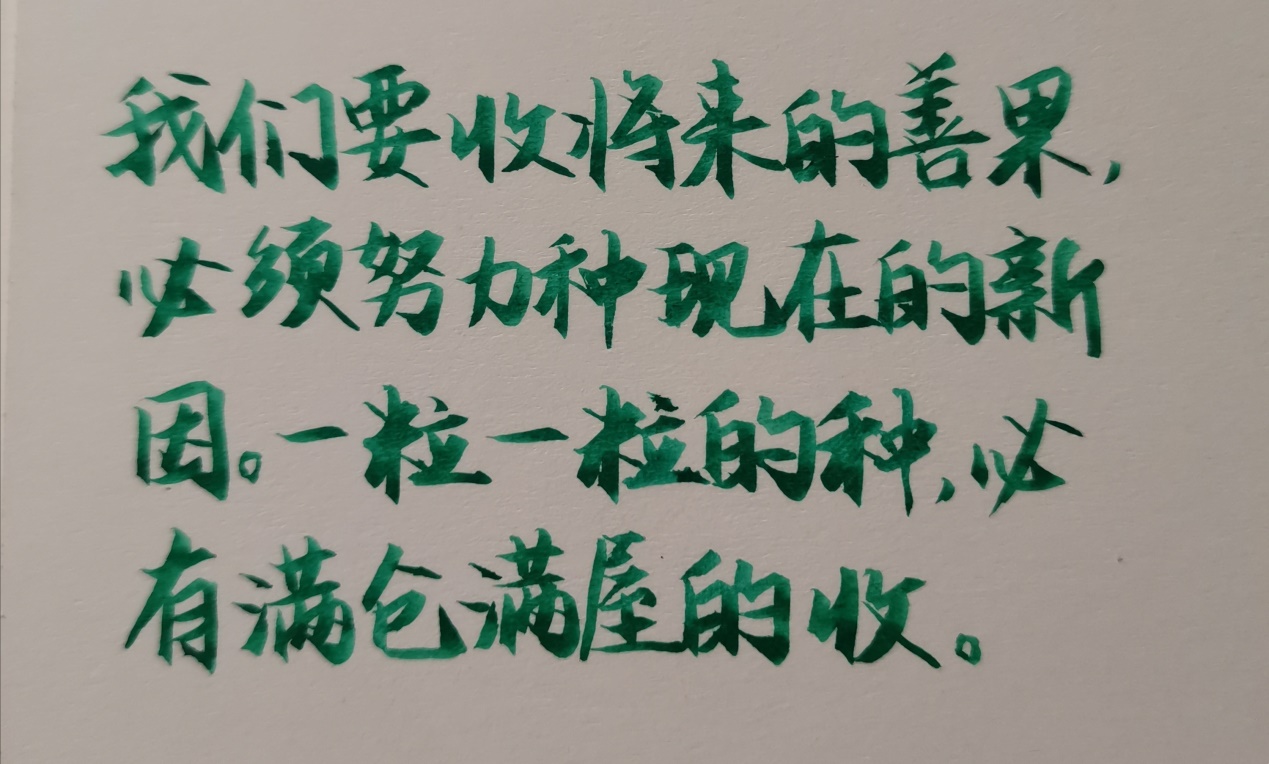 我们要收将来的善果，
必须努力种现在的新
因。一粒一粒的种，必
有满仓满屋的收。